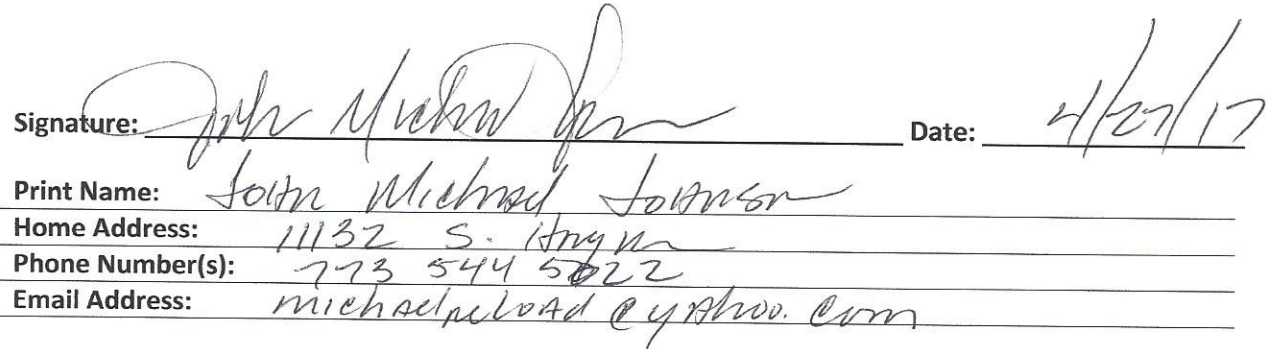 Signature: John Michael Johnson Date: 4/27/17
Print Name: John Michael Johnson
Home Address: 11132 S.
Phone Number(s): 773 544 5022
Email Address: michaelreload@yahoo.com